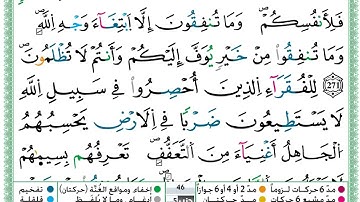 فَلِأَنفُسِكُمْۖ وَمَا تُنفِقُونَ إِلَّا اَ۪بْتِغَآءَ وَجْهِ اِ۬للَّهِۖ
وَمَا تُنفِقُواْ مِنْ خَيْرٖ يُوَفَّ إِلَيْكُمْ وَأَنتُمْ لَا تُظْلَمُونَۖ
271 لِلْفُقَرَآءِ اِ۬لذِينَ أُحْصِرُواْ فِے سَبِيلِ اِ۬للَّهِ
لَا يَسْتَطِيعُونَ ضَرْباٗ فِے اِ۬لَارْضِ يَحْسِبُهُمُ
اُ۬لْجَاهِلُ أَغْنِيَآءَ مِنَ اَ۬لتَّعَفُّفِۖ تَعْرِفُهُم بِسِيمٰهُمْۖ
46
مدّ 6 حركات لزوماً مدّ 2 أو 4 أو 6 جوازاً إخفاء ومواقع الغُنَّة (حركتان) تفخيم
مدّ مشبع 6 حركات مدّ حركتان إدغام ، وما لا يُلفَظ قلقلة